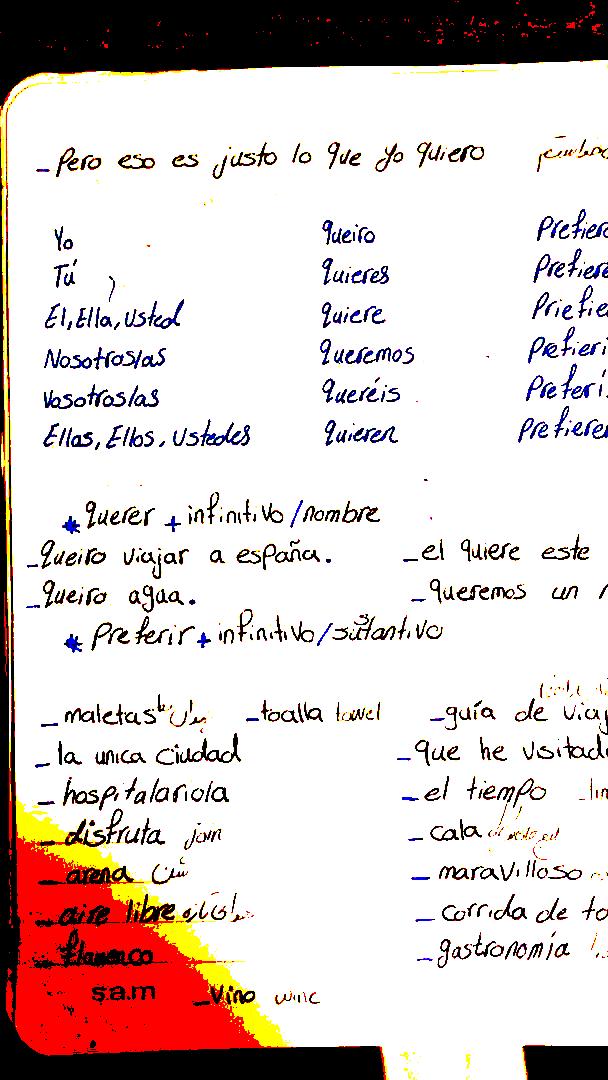 - Pero eso es justo lo que yo quiero
Yo queiro Prefier
Tú quieres Prefiere
El, Ella, Usted quiere Priefie
Nosotros/as queremos Prefieri
Vosotros/as queréis Preferí
Ellas, Ellos, Ustedes quieren Prefieren
* querer + infinitivo/nombre
- queiro viajar a españa. - el quiere este
- queiro agua. - queremos un
* Preferir + infinitivo/
- maletas - toalla towel - guía de viaj
- la unica ciudad - que he visitad
- hospitalario/a - el tiempo
- disfruta join - cala
- arena شن - maravilloso
- aire libre - corrida de to
- flamenco - gastronomía
s.a.m - Vino wine